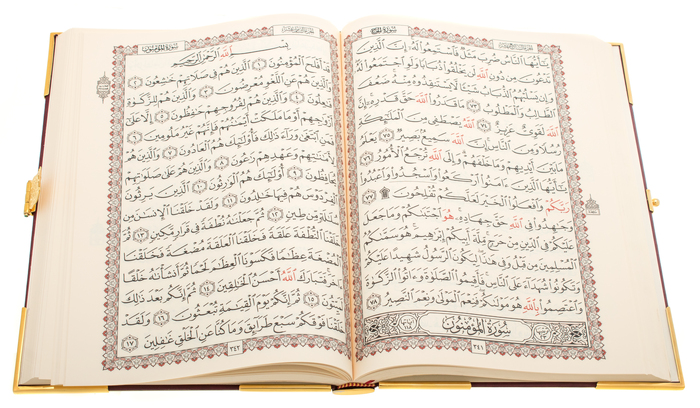 سُورَةُ الحَجِّ
يَٰٓأَيُّهَا ٱلنَّاسُ ضُرِبَ مَثَلٌ فَٱسْتَمِعُوا۟ لَهُۥٓ إِنَّ ٱلَّذِينَ
تَدْعُونَ مِن دُونِ ٱللَّهِ لَن يَخْلُقُوا۟ ذُبَابًا وَلَوِ ٱجْتَمَعُوا۟ لَهُۥ
وَإِن يَسْلُبْهُمُ ٱلذُّبَابُ شَيْـًٔا لَّا يَسْتَنقِذُوهُ مِنْهُ ضَعُفَ
ٱلطَّالِبُ وَٱلْمَطْلُوبُ ٧٣ مَا قَدَرُوا۟ ٱللَّهَ حَقَّ قَدْرِهِۦٓ إِنَّ
ٱللَّهَ لَقَوِىٌّ عَزِيزٌ ٧٤ ٱللَّهُ يَصْطَفِى مِنَ ٱلْمَلَٰٓئِكَةِ
رُسُلًا وَمِنَ ٱلنَّاسِ إِنَّ ٱللَّهَ سَمِيعٌۢ بَصِيرٌ ٧٥ يَعْلَمُ
مَا بَيْنَ أَيْدِيهِمْ وَمَا خَلْفَهُمْ وَإِلَى ٱللَّهِ تُرْجَعُ ٱلْأُمُورُ ٧٦
يَٰٓأَيُّهَا ٱلَّذِينَ ءَامَنُوا۟ ٱرْكَعُوا۟ وَٱسْجُدُوا۟ وَٱعْبُدُوا۟
رَبَّكُمْ وَٱفْعَلُوا۟ ٱلْخَيْرَ لَعَلَّكُمْ تُفْلِحُونَ ۩ ٧٧
وَجَٰهِدُوا۟ فِى ٱللَّهِ حَقَّ جِهَادِهِۦ هُوَ ٱجْتَبَىٰكُمْ وَمَا جَعَلَ
عَلَيْكُمْ فِى ٱلدِّينِ مِنْ حَرَجٍ مِّلَّةَ أَبِيكُمْ إِبْرَٰهِيمَ هُوَ سَمَّىٰكُمُ
ٱلْمُسْلِمِينَ مِن قَبْلُ وَفِى هَٰذَا لِيَكُونَ ٱلرَّسُولُ شَهِيدًا عَلَيْكُمْ
وَتَكُونُوا۟ شُهَدَآءَ عَلَى ٱلنَّاسِ فَأَقِيمُوا۟ ٱلصَّلَوٰةَ وَءَاتُوا۟ ٱلزَّكَوٰةَ
وَٱعْتَصِمُوا۟ بِٱللَّهِ هُوَ مَوْلَىٰكُمْ فَنِعْمَ ٱلْمَوْلَىٰ وَنِعْمَ ٱلنَّصِيرُ ٧٨
سُورَةُ المُؤْمِنُون
٣٤١
سُورَةُ المُؤْمِنُون
بِسْمِ ٱللَّهِ ٱلرَّحْمَٰنِ ٱلرَّحِيمِ
قَدْ أَفْلَحَ ٱلْمُؤْمِنُونَ ١ ٱلَّذِينَ هُمْ فِى صَلَاتِهِمْ خَٰشِعُونَ ٢
وَٱلَّذِينَ هُمْ عَنِ ٱللَّغْوِ مُعْرِضُونَ ٣ وَٱلَّذِينَ هُمْ لِلزَّكَوٰةِ
فَٰعِلُونَ ٤ وَٱلَّذِينَ هُمْ لِفُرُوجِهِمْ حَٰفِظُونَ ٥ إِلَّا عَلَىٰٓ
أَزْوَٰجِهِمْ أَوْ مَا مَلَكَتْ أَيْمَٰنُهُمْ فَإِنَّهُمْ غَيْرُ مَلُومِينَ ٦
فَمَنِ ٱبْتَغَىٰ وَرَآءَ ذَٰلِكَ فَأُو۟لَٰٓئِكَ هُمُ ٱلْعَادُونَ ٧ وَٱلَّذِينَ هُمْ
لِأَمَٰنَٰتِهِمْ وَعَهْدِهِمْ رَٰعُونَ ٨ وَٱلَّذِينَ هُمْ عَلَىٰ صَلَوَٰتِهِمْ
يُحَافِظُونَ ٩ أُو۟لَٰٓئِكَ هُمُ ٱلْوَٰرِثُونَ ١٠ ٱلَّذِينَ يَرِثُونَ
ٱلْفِرْدَوْسَ هُمْ فِيهَا خَٰلِدُونَ ١١ وَلَقَدْ خَلَقْنَا ٱلْإِنسَٰنَ مِن
سُلَٰلَةٍ مِّن طِينٍ ١٢ ثُمَّ جَعَلْنَٰهُ نُطْفَةً فِى قَرَارٍ مَّكِينٍ ١٣
ثُمَّ خَلَقْنَا ٱلنُّطْفَةَ عَلَقَةً فَخَلَقْنَا ٱلْعَلَقَةَ مُضْغَةً فَخَلَقْنَا
ٱلْمُضْغَةَ عِظَٰمًا فَكَسَوْنَا ٱلْعِظَٰمَ لَحْمًا ثُمَّ أَنشَأْنَٰهُ خَلْقًا
ءَاخَرَ فَتَبَارَكَ ٱللَّهُ أَحْسَنُ ٱلْخَٰلِقِينَ ١٤ ثُمَّ إِنَّكُم بَعْدَ ذَٰلِكَ
لَمَيِّتُونَ ١٥ ثُمَّ إِنَّكُمْ يَوْمَ ٱلْقِيَٰمَةِ تُبْعَثُونَ ١٦ وَلَقَدْ
خَلَقْنَا فَوْقَكُمْ سَبْعَ طَرَآئِقَ وَمَا كُنَّا عَنِ ٱلْخَلْقِ غَٰفِلِينَ ١٧
٣٤٢